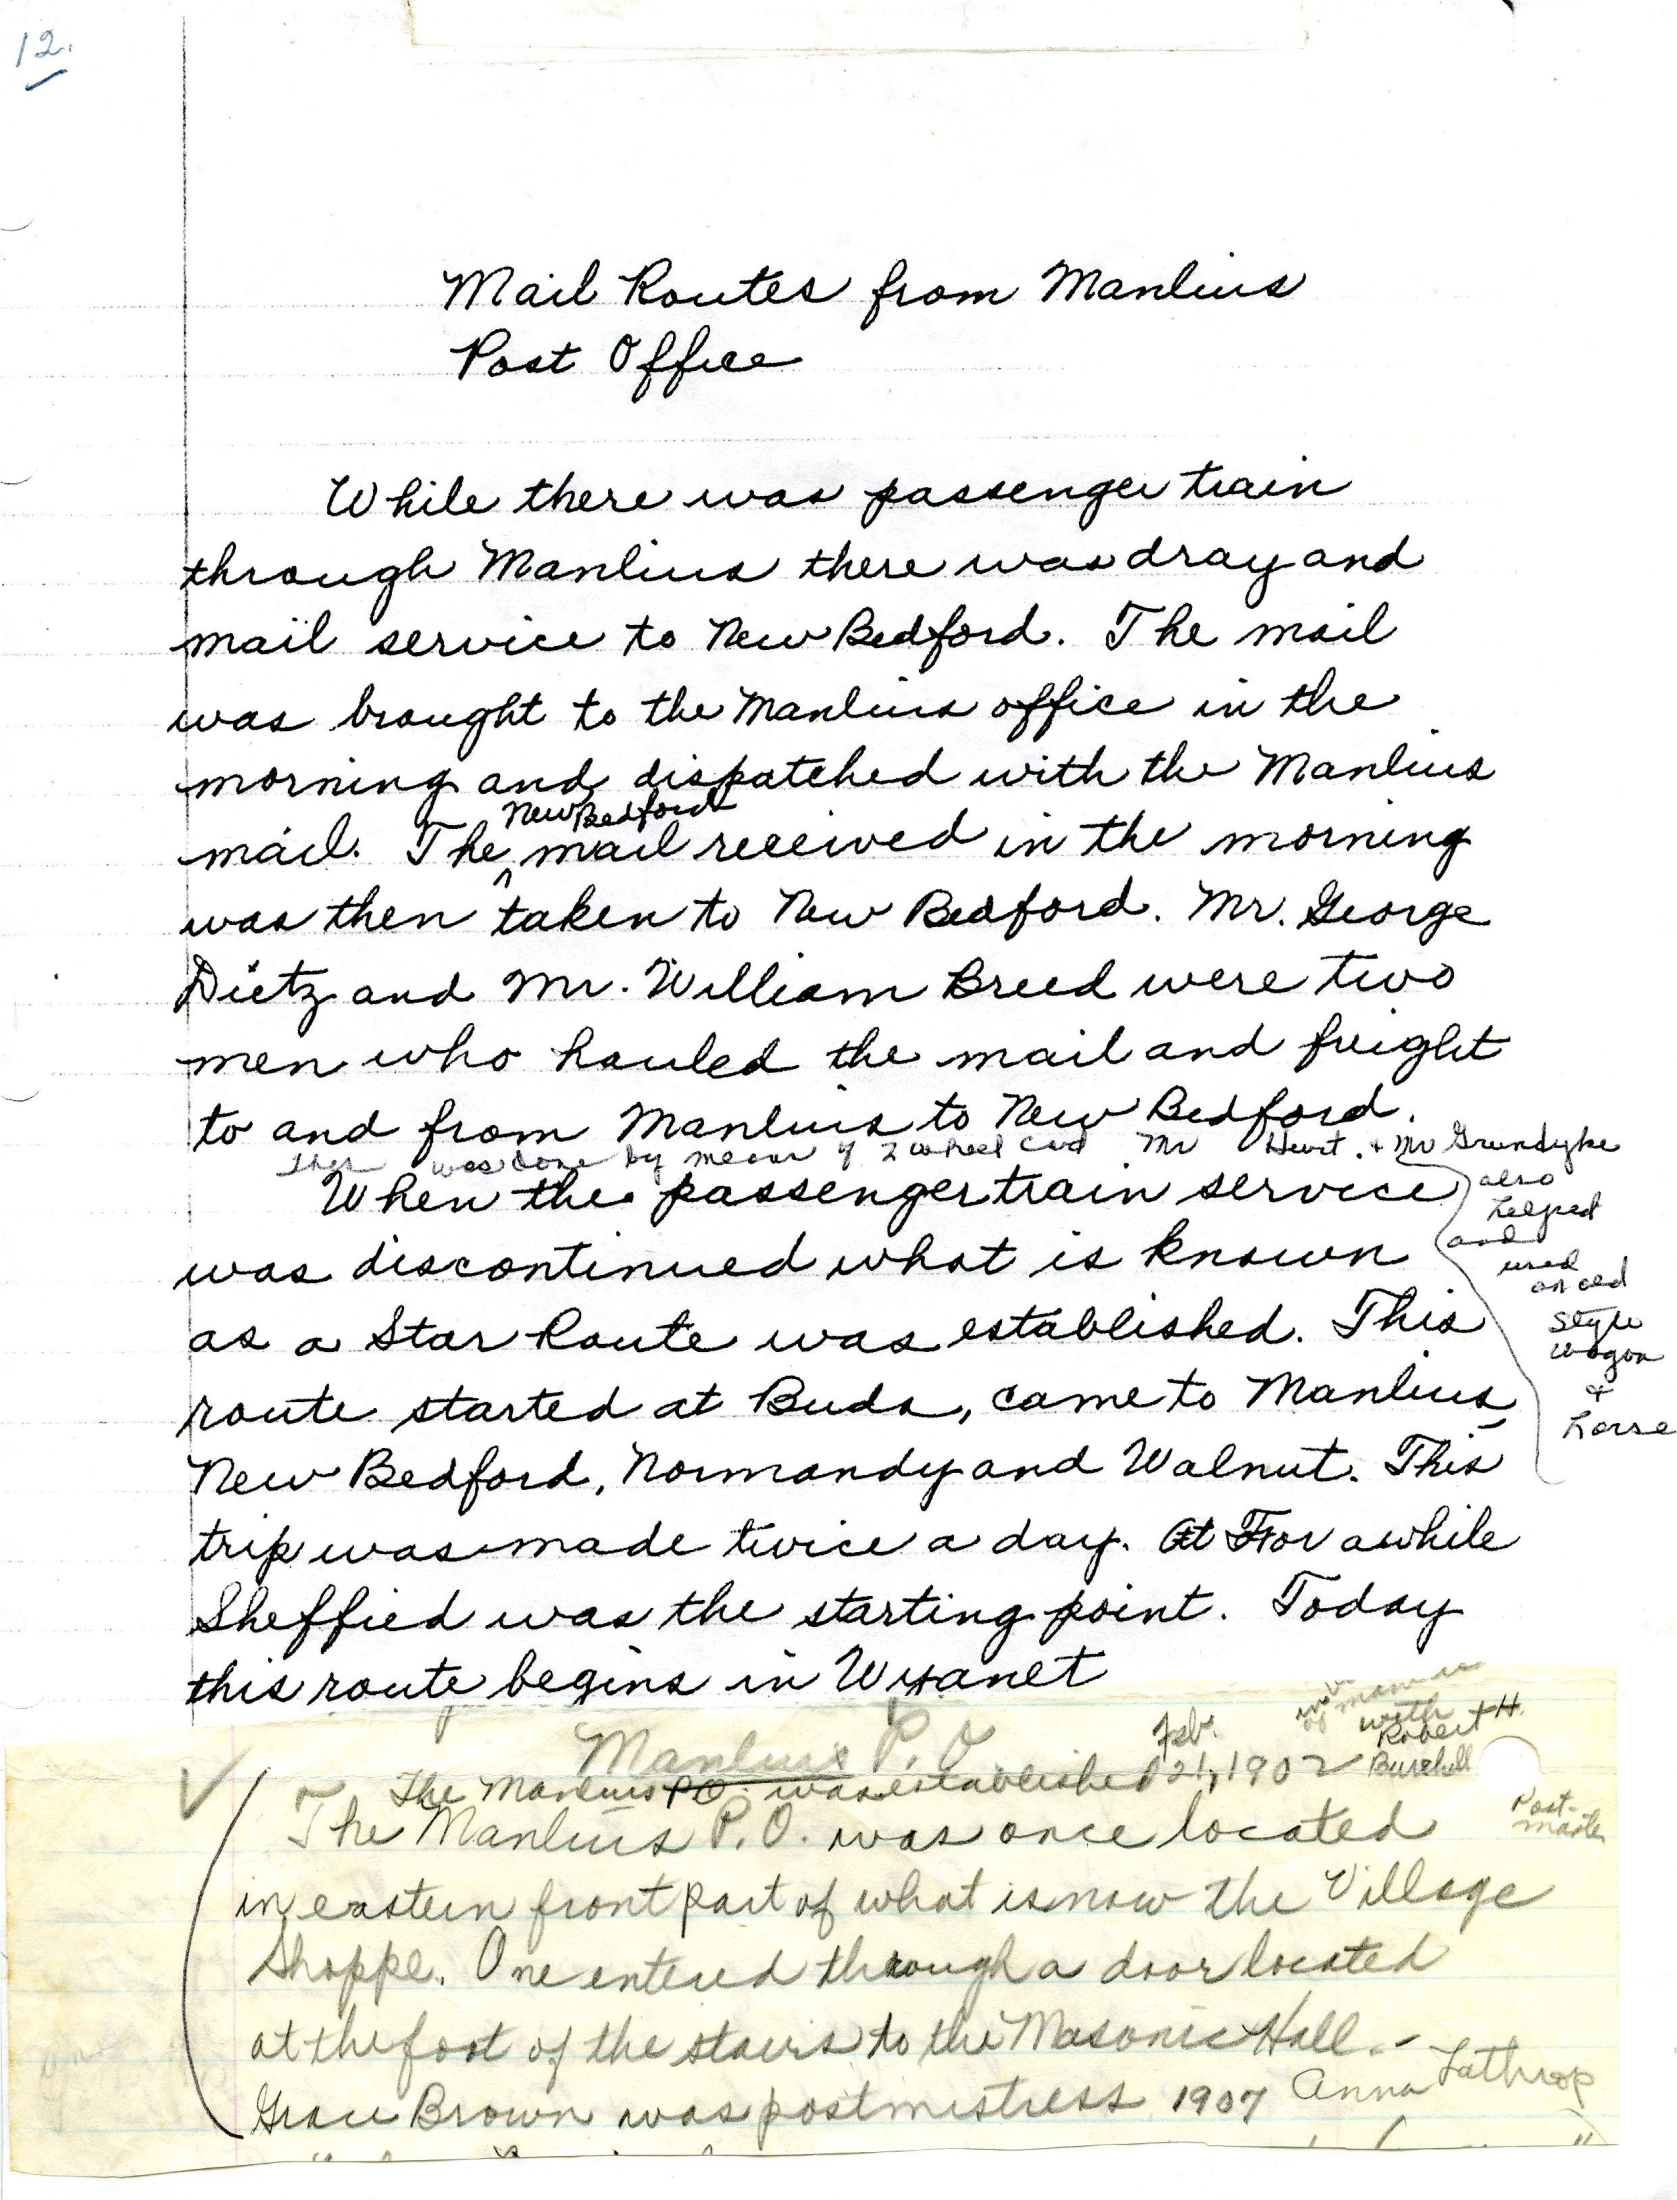 12.
Mail Routes from Manlius
Post Office
While there was passenger train
through Manlius there was dray and
mail service to New Bedford. The mail
was brought to the Manlius office in the
morning and dispatched with the Manlius
New Bedford
mail. The ^ mail received in the morning
was then taken to New Bedford. Mr. George
Dietz and Mr. William Breed were two
men who hauled the mail and freight
to and from Manlius to New Bedford.
This was done by means of 2 wheel cart Mr Hurt. + Mr Grundyke
also
helped
and
used
an old
style
wagon
+
horse
When the passenger train service
was discontinued what is known
as a Star Route was established. This
route started at Buda, came to Manlius,
New Bedford, Normandy and Walnut. This
trip was made twice a day. At For awhile
Sheffied was the starting point. Today
this route begins in Wyanet
Manlius P. O
The Manlius PO was established Feb. 21, 1902
with
Robert H.
Burchell
Post-
master
The Manlius P.O. was once located
in eastern front part of what is now the Village
Shoppe. One entered through a door located
at the foot of the stairs to the Masonic Hall. -
Grace Brown was postmistress 1907 Anna Lathrop